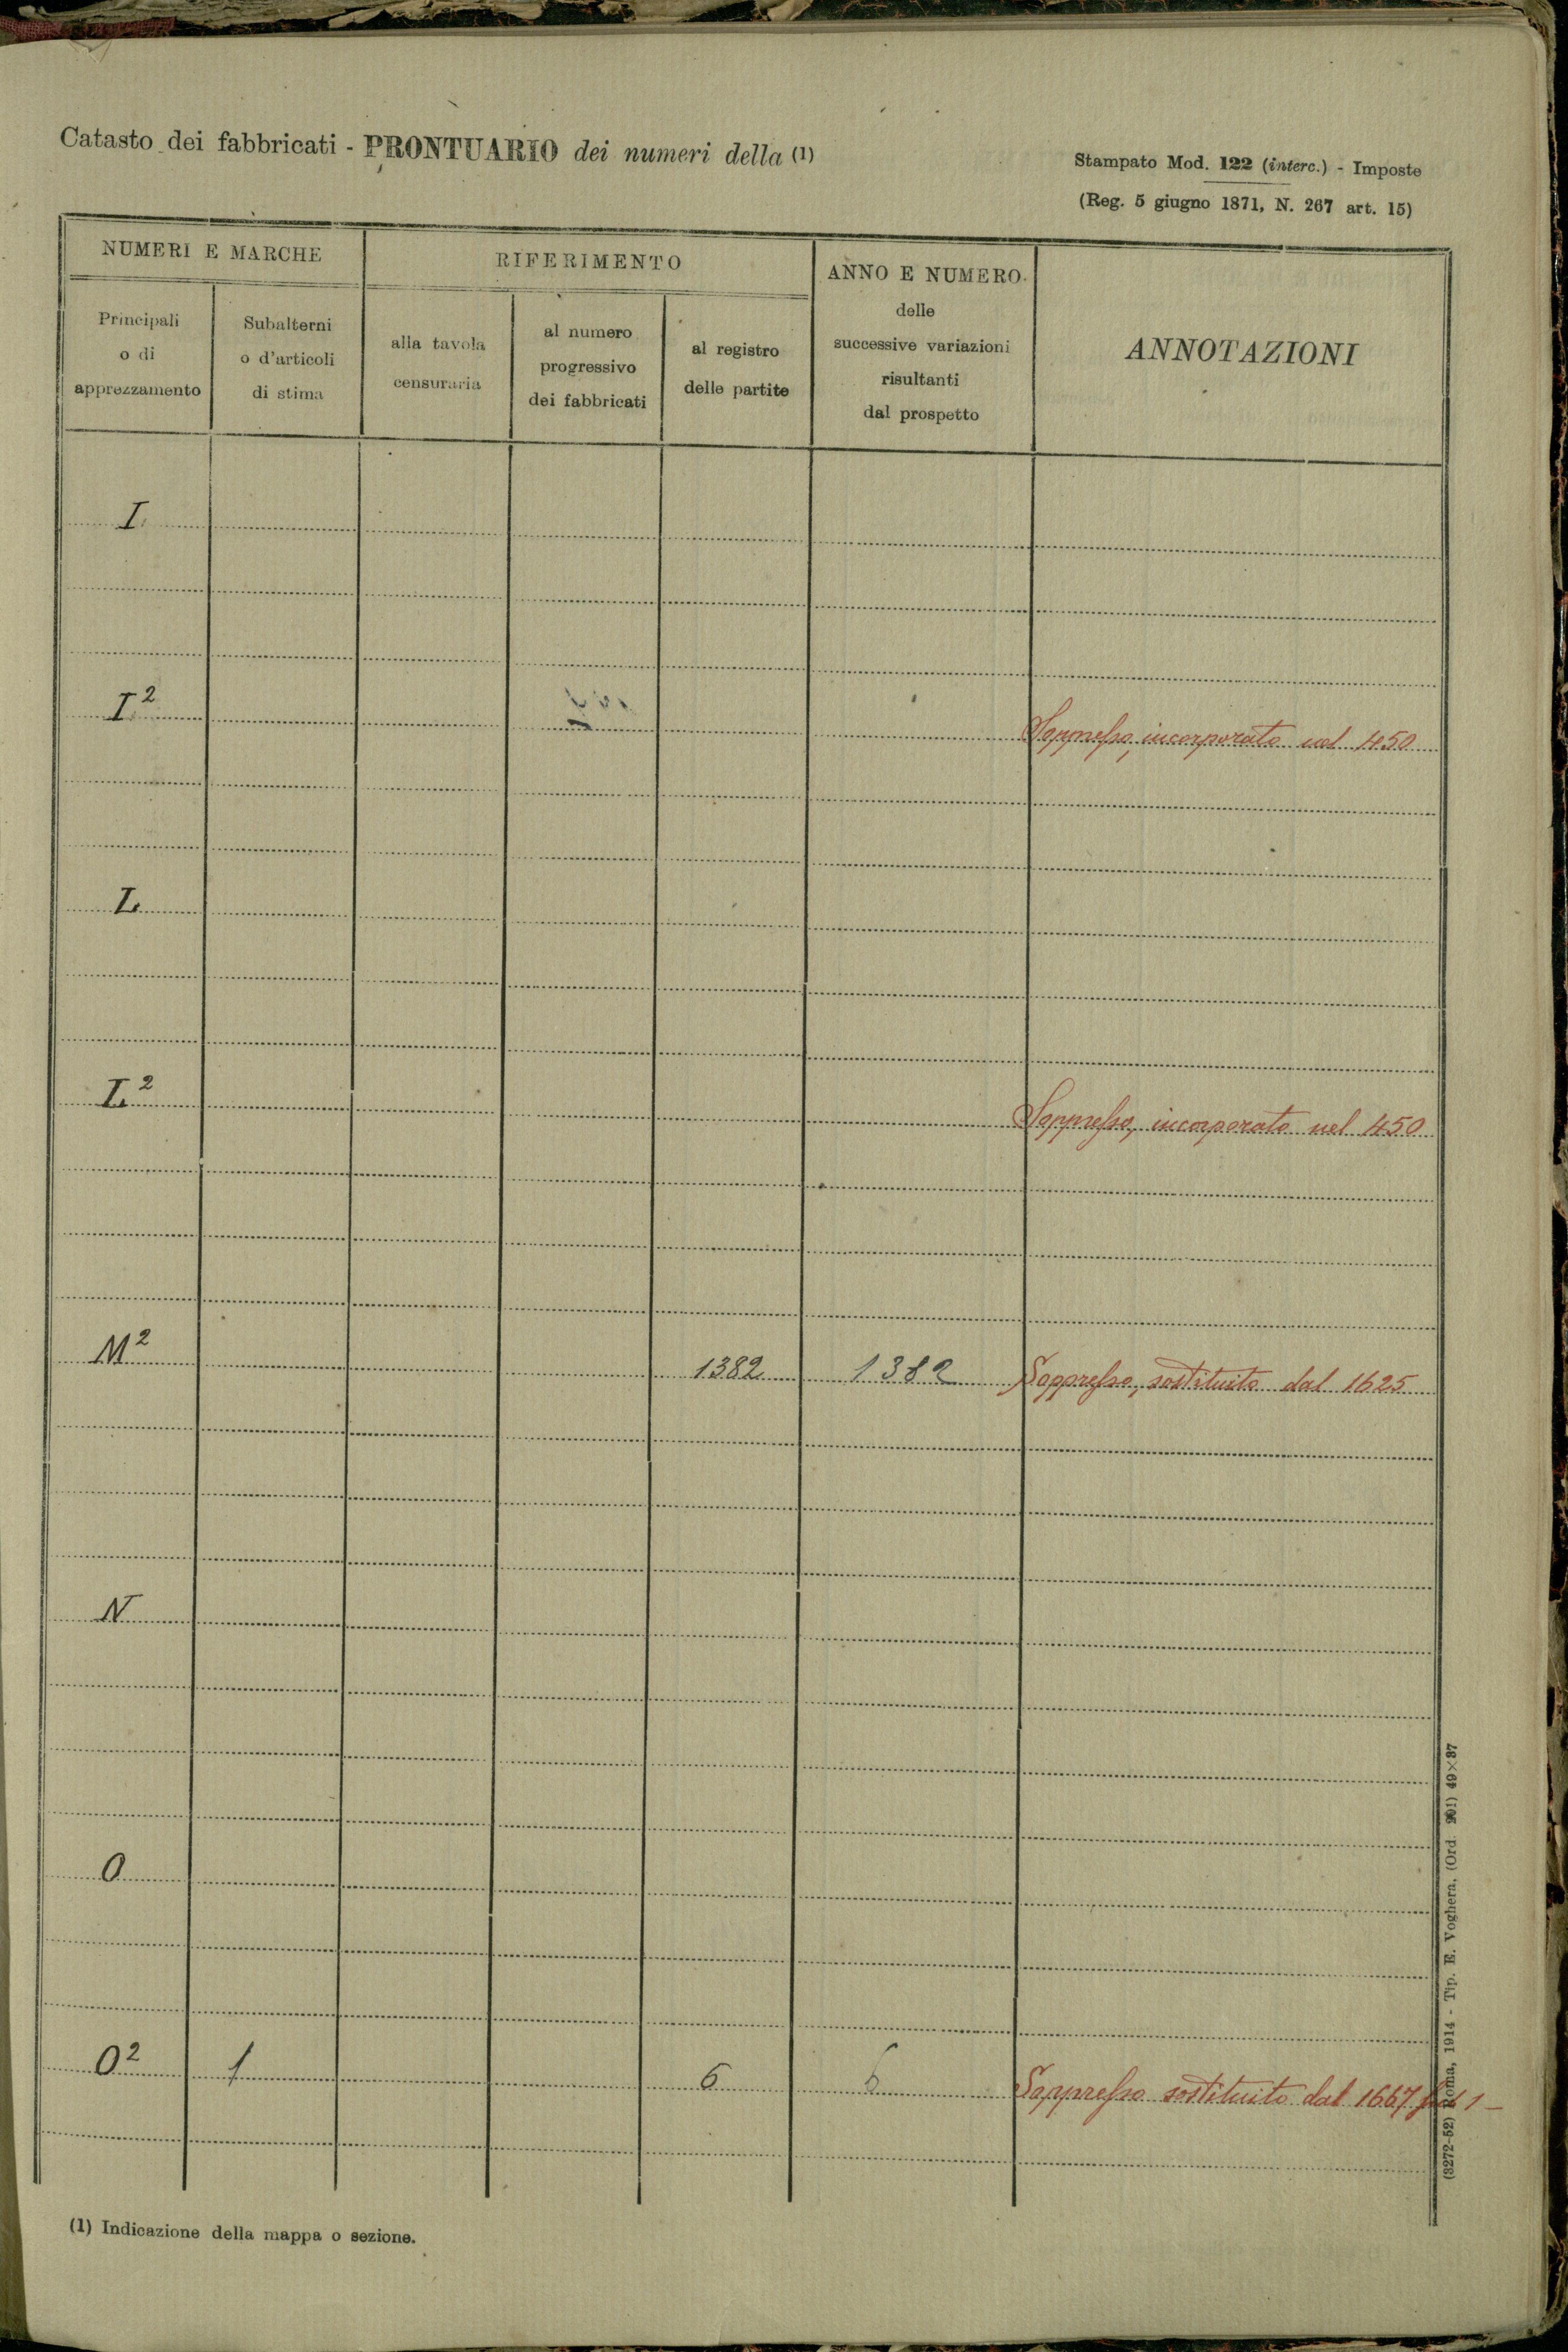 Catasto dei fabbricati - PRONTUARIO dei numeri della (1)
Stampato Mod. 122 (interc.) - Imposte
(Reg. 5 giugno 1871, N. 267 art. 15)
NUMERI E MARCHE
RIFERIMENTO
ANNO E NUMERO
delle
successive variazioni
risultanti
dal prospetto
ANNOTAZIONI
Principali
o di
apprezzamento
Subalterni
o d'articoli
di stima
alla tavola
censuraria
al numero
progressivo
dei fabbricati
al registro
delle partite
I
I² Soppresso, incorporato nel 450
L
L² Soppresso, incorporato nel 450
M² 1382 1382 Soppresso, sostituito dal 1625
N
O
O² 1 6 6 Soppresso sostituito dal 1667 1
(1) Indicazione della mappa o sezione.
(3272-52) Roma, 1914 - Tip. E. Voghera, (Ord. 201) 49×37